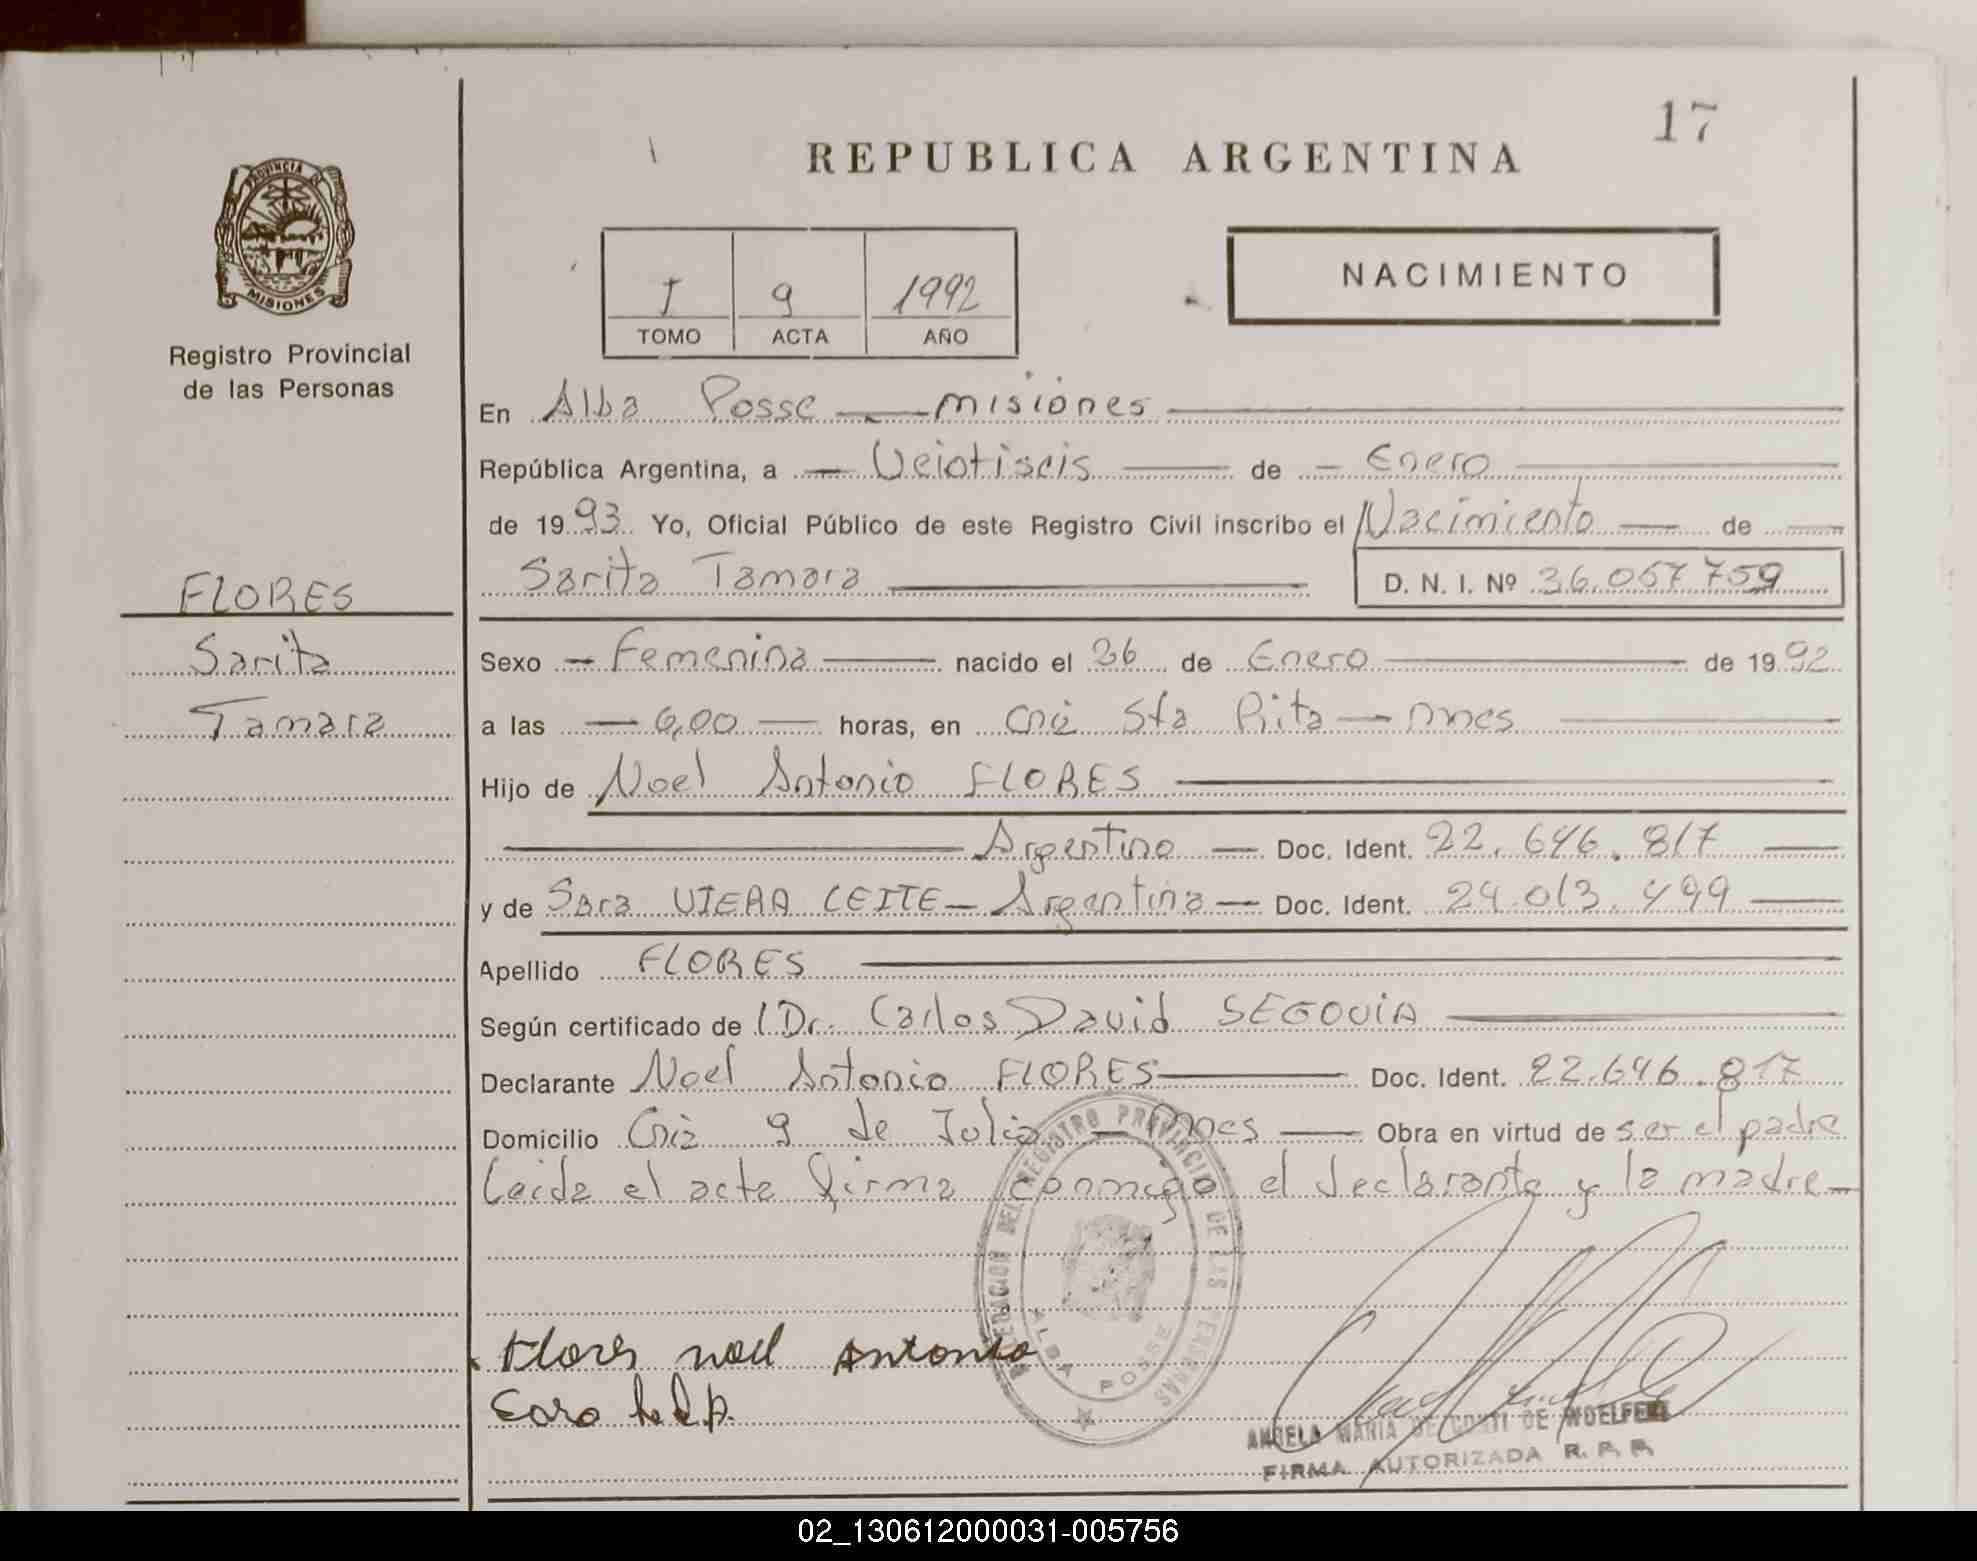 17
REPUBLICA ARGENTINA
PROVINCIA DE
MISIONES
Registro Provincial
de las Personas
I 9 1992
TOMO ACTA AÑO
NACIMIENTO
En Alba Posse misiones
República Argentina, a Veintiseis de Enero
de 1993 Yo, Oficial Público de este Registro Civil inscribo el Nacimiento de
Sarita Tamara D. N. I. Nº 36.057.759
FLORES
Sarita
Tamara
Sexo Femenina nacido el 26 de Enero de 1992
a las 6,00 horas, en Cnia Sta Rita Mnes
Hijo de Noel Antonio FLORES
Argentino Doc. Ident. 22.646.817
y de Sara VIERA LEITE Argentina Doc. Ident. 24.013.499
Apellido FLORES
Según certificado de Dr. Carlos David SEGOVIA
Declarante Noel Antonio FLORES Doc. Ident. 22.646.817
Domicilio Cnia 9 de Julio Mnes Obra en virtud de ser el padre
Leida el acta firma conmigo el declarante y la madre
DELEGACION DEL REGISTRO PROVINCIAL DE LAS PERSONAS
ALBA POSSE
Flores noel Antonio
ANGELA MARIA DE CONTI DE
FIRMA AUTORIZADA R. P. P.
02_130612000031-005756